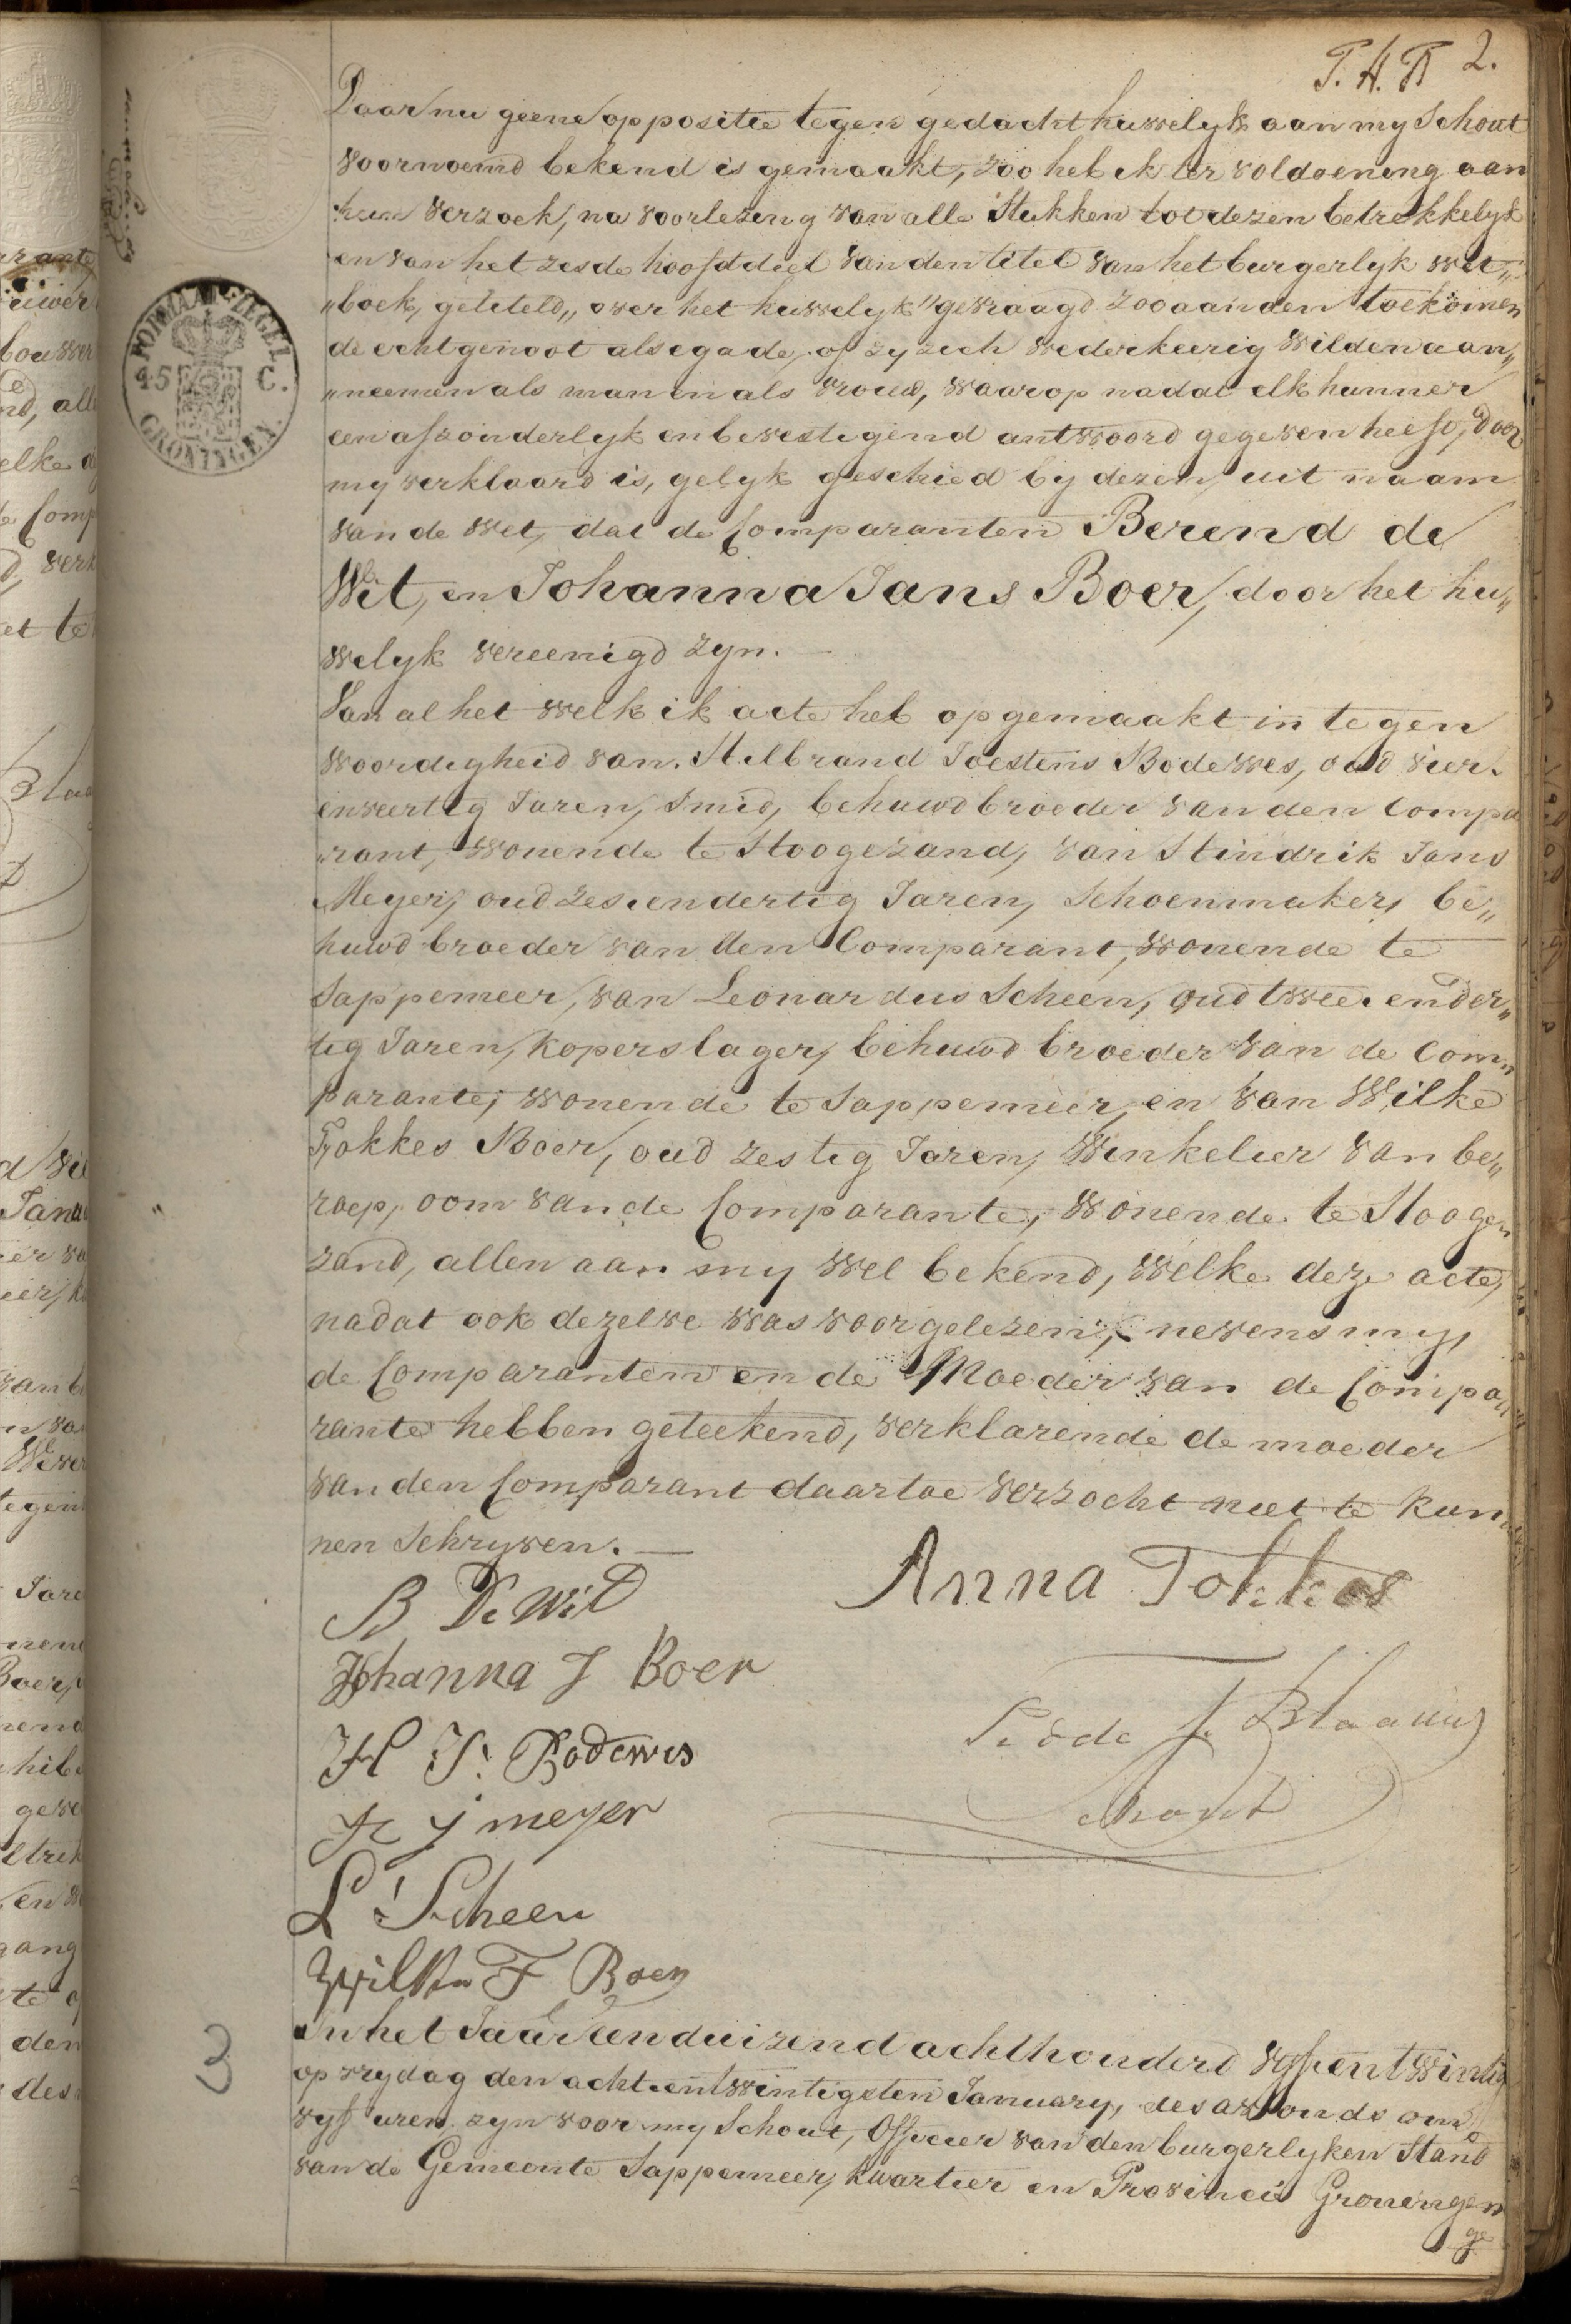 2.
Daar nu geene oppositie tegen gedacht huwelyk aan my Schout
voornoemd bekend is gemaakt, zoo heb ik ter voldoening aan
hun verzoek, na voorlezing van alle Stukken tot dezen betrekkelyk
en van het zesde hoofddeel van den titel van het burgerlyk wet„
„boek, getiteld„ over het huwelyk" gevraagd zoo aan den toekomen
de echtgenoot als egade, of zy zich wederkeerig wilden aan„
„neemen als man en als vrouw, waarop nadat elk hunner
een afzonderlyk en bevestigend antwoord gegeven heeft, door
my verklaard is, gelyk geschied by dezen, uit naam
van de wet, dat de Comparanten Berend de
Wit, en Johanna Jans Boer, door het hu„
welyk vereenigd zyn.
Van al het welk ik acte heb opgemaakt in tegen
woordigheid van Hilbrand Joestens Bodewes, oud vier.
enveertig Jaren, Smid, behuwdbroeder van den Compa
„rant, wonende te Hoogezand, van Hindrik Jans
Meyer, oud zes.endertig Jaren, Schoenmaker, be„
huwdbroeder van den Comparant, wonende te
Sappemeer, van Leonardus Scheen, oud twee.ender„
tig Jaren, koperslager, behuwdbroeder van de Com„
parante, wonende te Sappemeer, en van Wilke
Fokkes Boer, oud zestig Jaren, Winkelier van be„
roep, oom van de Comparante, wonende te Hooge„
zand, allen aan my wel bekend, welke deze acte,
nadat ook dezelve was voorgelezen, nevens my,
de Comparanten en de Moeder van de Compa„
rante hebben geteekend, verklarende de moeder
van den Comparant daartoe verzocht niet te kun„
nen Schryven.
B De Wit
Anna Tokkes
Johanna J Boer
H J. Bodewes
F Blaauw
Schout
H J meyer
L Scheen
Wilke F Boer
3
In het Jaar eenduizend achthonderd vyfentwintig
op vrydag den achtentwintigsten January, des avonds om
vyf uren zyn voor my Schout, Officier van den burgerlyken Stand
van de Gemeente Sappemeer, kwartier en Provincie Groningen
ge
FORMAAT ZEGEL
45 C.
GRONINGEN.